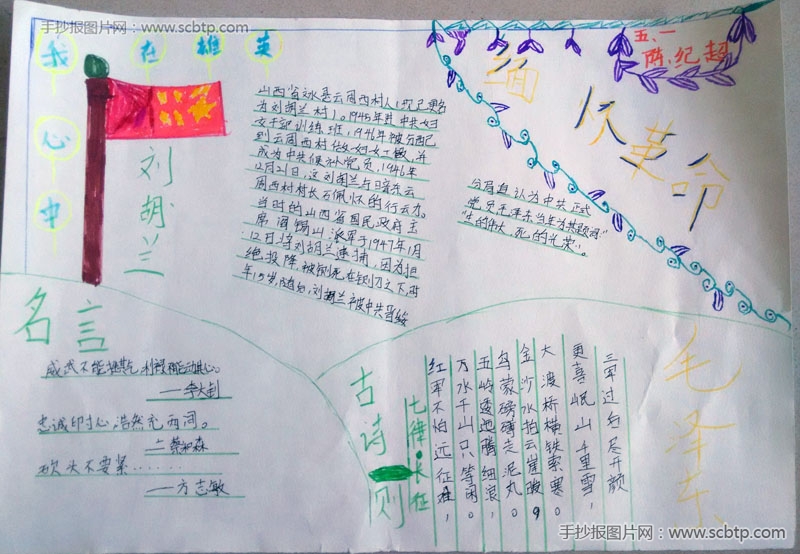 手抄报图片网：www.scbtp.com
我心中
在雄英
五、一
陈纪超
缅怀革命
刘胡兰
山西省文水县云周西村人（现已更名
为刘胡兰村）。1945年进中共妇
女干部训练班，1946年被分配
到云周西村做妇女工做，并
成为中共候补党员，1946年
12月21日，
周西村村长石佩怀的行云力。
当时的山西省国民政府主
席阎锡山派军于1947年1月
12日将刘胡兰逮捕，因为拒
绝投降，被铡死在铡刀之下，
年15岁，随后，刘胡兰被中共晋绥
分局追认为中共正式
党员毛泽东当年为其题词：
“生的伟大，死的光荣”。
名言
成武不能
——李大钊
忠诚印寸心，浩然充两间。
——蔡和森
砍头不要紧……
——方志敏
古诗一则
七律·长征
红军不怕远征难，
万水千山只等闲。
五岭逶迤腾细浪，
乌蒙磅礴走泥丸。
金沙水拍云崖暖，
大渡桥横铁索寒。
更喜岷山千里雪，
三军过后尽开颜
毛泽东
手抄报图片网：www.scbtp.com